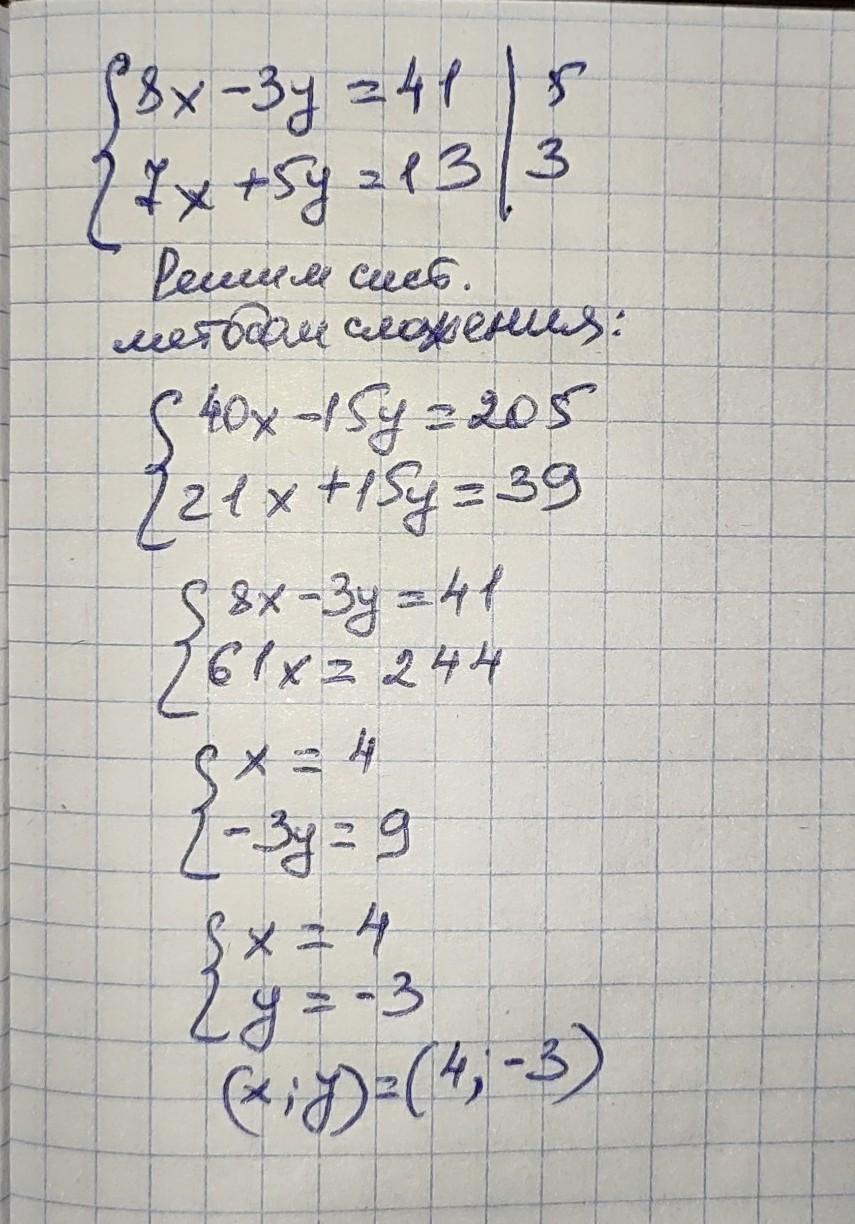 {8x -3y = 41 | 5
{7x +5y = 13 | 3
Решим сист.
методом сложения:
{40x -15y = 205
{21x +15y = 39
{8x -3y = 41
{61x = 244
{x = 4
{-3y = 9
{x = 4
{y = -3
(x; y) = (4; -3)